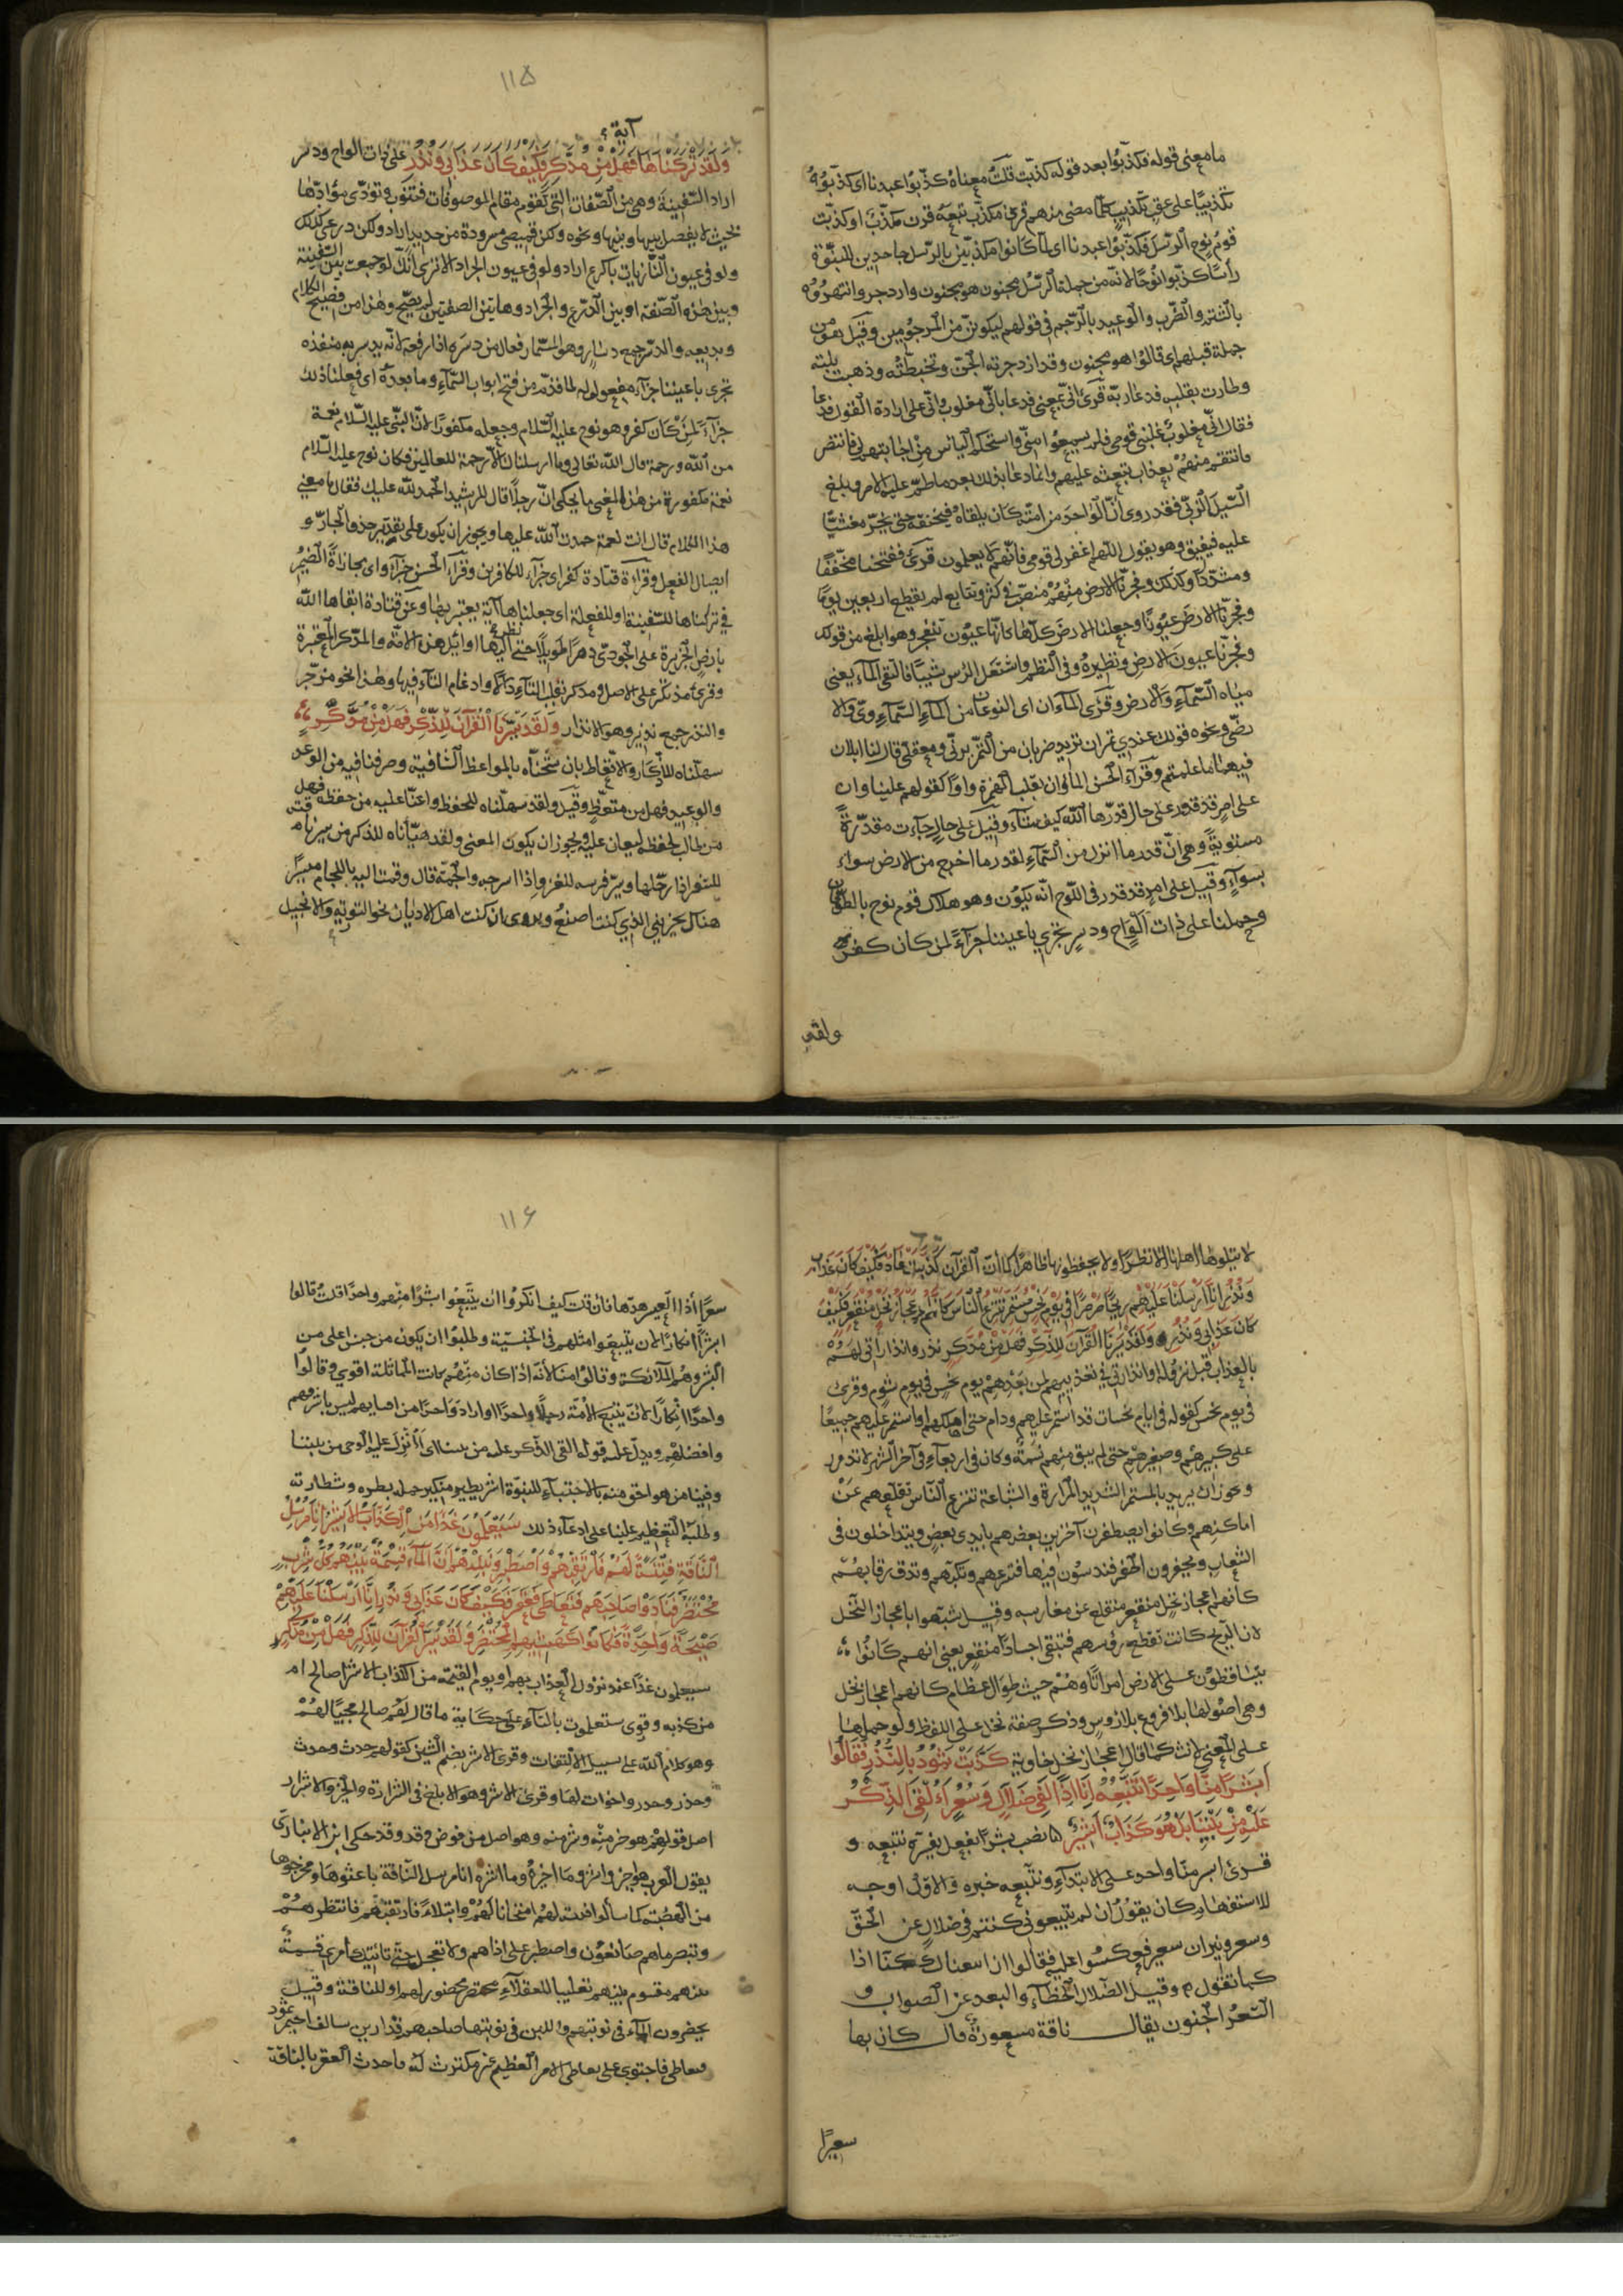 ما معنى قوله فكذبوا بعد قوله كذبت قلت معناه كذبوا عبدنا اى كذبوه
تكذيبا على عقب تكذيب كلما مضى منهم قرن مكذب تبعه قرن مكذب او كذبت
قوم نوح الرسل فكذبوا عبدنا اى لما كانوا مكذبين بالرسل جاحدين للنبوة
رأسا كذبوا نوحا لانه من جملة الرسل مجنون هو مجنون وازدجر وانتهروه
بالشتم والضرب والوعيد بالرجم فى قولهم ليكونن من المرجومين وقيل هو من
جملة قيلهم اى قالوا هو مجنون وقد ازدجرته الجن وتخبطته وذهبت بلبه
وطارت بقلبه فدعا ربه قرئ انى بمعنى فدعا بانى مغلوب وانى على ارادة القول فدعا
فقال انى مغلوب غلبنى قومى فلم يسمعوا منى واستحكم اليأس من اجابتهم لى فانتصر
فانتقم منهم بعذاب تبعثه عليهم وانما دعا بذلك بعد ما طم عليه الامر وبلغ
السيل الزبى فقد روى ان الواحد من امته كان يلقاه فيخنقه حتى يخر مغشيا
عليه فيفيق وهو يقول اللهم اغفر لقومى فانهم لا يعلمون قرئ ففتحنا مخففا
ومشددا وكذلك وفجرنا الارض منهمر منصب فى كثرة وتتابع لم ينقطع اربعين يوما
وفجرنا الارض عيونا وجعلنا الارض كلها كانها عيون تنفجر وهو ابلغ من قولك
وفجرنا عيون الارض ونظيره فى النظم واشتعل الرأس شيبا فالتقى الماء يعنى
مياه السماء والارض وقرئ الماءان اى النوعان من الماء السماوى والا
رضى ونحوه قولك عندى تمران تريد ضربان من التمر برنى ومعقلى قال لنا ابلان
فيهما ما علمتم وقرأ الحسن الماوان بقلب الهمزة واوا كقولهم علباوان
على امر قد قدر على حال قدرها الله كيف شاء وقيل على حال جاءت مقدرة
مستوية وهى ان قدر ما انزل من السماء لقدر ما اخرج من الارض سواء
بسواء وقيل على امر قد قدر فى اللوح انه يكون وهو هلاك قوم نوح بالطوفان
وحملنا على ذات الواح ودسر تجرى باعيننا جزاء لمن كان كفر
ولقد
١١۵
آية
ولقد تركناها فهل من مدكر وكيف كان عذابى ونذر على ذات الواح ودسر
اراد السفينة وهى من الصفات التى تقوم مقام الموصوفات فتنوب وتؤدى مؤداها
بحيث لا يفصل بينها وبينها ونحوه ولكن قميصى مسرودة من حديد اراد ولكن درعى كذلك
ولو فى عيون النازيات باكرع اراد ولو فى عيون الجراد الا ترى انك لو جمعت بين السفينة
وبين هذه الصفة او بين الدرع والجراد وهاتين الصفتين لم يصح وهذا من فصيح الكلام
وبديعه والدسر جمع دسار وهو المسمار فعال من دسره اذا دفعه لانه يدسر به منفذه
تجرى باعيننا جزاء مفعول له لما قدم من فتح ابواب السماء وما بعده اى فعلنا ذلك
جزاء لمن كان كفر وهو نوح عليه السلام وجعله مكفورا لان النبى عليه السلام نعمة
من الله ورحمة قال الله تعالى وما ارسلناك الا رحمة للعالمين فكان نوح عليه السلام
نعمة مكفورة من هذا المعنى ما يحكى ان رجلا قال للرشيد الحمد لله عليك فقال ما معنى
هذا الكلام قال انت نعمة حمدت الله عليها ويجوز ان يكون على تقدير حذف الجار و
ايصال الفعل وقرأ قتادة كفر اى جزاء للكافرين وقرأ الحسن جزاء اى مجازاة الضمير
فى تركناها للسفينة او للفعلة اى جعلناها آية يعتبر بها وعن قتادة ابقاها الله
بارض الجزيرة على الجودى دهرا طويلا حتى نظر اليها اوائل هذه الامة والمدكر المعتبر
وقرئ مذتكر على الاصل ومذكر بقلب التاء ذالا وادغام الذال فيها وهذا نحو مذجر
والنذر جمع نذير وهو الانذار ولقد يسرنا القرآن للذكر فهل من مدكر
سهلناه للادكار والاتعاظ بان شحناه بالمواعظ الشافية وصرفنا فيه من الوعد
والوعيد فهل من متعظ وقيل ولقد سهلناه للحفظ واعنا عليه من حفظه فهل
من طالب لحفظه ليعان عليه ويجوز ان يكون المعنى ولقد هيأناه للذكر من يسر ناقته
للسفر اذا رحلها ويسر فرسه للغزو اذا اسرجه والجمه قال وقمت اليه باللجام ميسرا
هنالك يجزينى الذى كنت اصنع ويروى ان كتب اهل الاديان نحو التورية والانجيل
لا يتلوها اهلها الا نظرا ولا يحفظونها ظاهرا كما القرآن كذبت عاد فكيف كان عذابى
ونذر انا ارسلنا عليهم ريحا صرصرا فى يوم نحس مستمر تنزع الناس كانهم اعجاز نخل منقعر فكيف
كان عذابى ونذر ولقد يسرنا القرآن للذكر فهل من مدكر نذر وانذاراتى لهم
بالعذاب قبل نزوله او انذاراتى فى تعذيبهم لمن بعدهم يوم نحس فى يوم شوم وقرئ
فى يوم نحس كقوله فى ايام نحسات قد استمر عليهم ودام حتى اهلكهم او استمر عليهم جميعا
على كبيرهم وصغيرهم حتى لم يبق منهم نسمة وكان فى اربعاء فى آخر الشهر لا تدور
ويجوز ان يريد بالمستمر الشديد المرارة والبشاعة تنزع الناس تقلعهم عن
اماكنهم وكانوا يصطفون آخذين بعضهم بايدى بعض ويتداخلون فى
الشعاب ويحفرون الحفر فيندسون فيها فتنزعهم وتكبهم وتدق رقابهم
كانهم اعجاز نخل منقعر منقلع عن مغارسه وقيل شبهوا باعجاز النخل
لان الريح كانت تقطع رؤسهم فتبقى اجسادا منقعر يعنى انهم كانوا
يتساقطون على الارض امواتا وهم جثث طوال عظام كانهم اعجاز نخل
وهى اصولها بلا فروع بلا رؤس وذكر صفة نخل على اللفظ ولو حملها
على المعنى لانث كما قال اعجاز نخل خاوية كذبت ثمود بالنذر فقالوا
ابشرا منا واحدا نتبعه انا اذا لفى ضلال وسعر ءالقى الذكر
عليه من بيننا بل هو كذاب اشر نصب بشرا بفعل يفسره نتبعه و
قرئ ابشر منا واحد على الابتداء ونتبعه خبره والاول اوجه
للاستفهام كان يقول ان لم تتبعونى كنتم فى ضلال عن الحق
وسعر ونيران سعير فعكسوا عليه فقالوا ان اتبعناك كنا اذا
كما تقول وقيل الضلال الخطاء والبعد عن الصواب و
السعر الجنون يقال ناقة مسعورة قال كان بها
سعرا
١١۶
سعرا اذا العيس هزها فان قلت كيف انكروا ان يتبعوا بشرا منهم واحدا قلت قالوا
ابشرا انكارا لان يتبعوا مثلهم فى الجنسية وطلبوا ان يكون من جنس اعلى من
البشر وهم الملائكة وقالوا منا لانه اذا كان منهم كانت المماثلة اقوى وقالوا
واحدا انكارا لان تتبع الامة رجلا واحدا او ارادوا واحدا من افنايهم ليس باشرفهم
وافضلهم ويدل عليه قوله القى الذكر عليه من بيننا اى أأنزل عليه الوحى من بيننا
وفينا من هو احق منه بالاختيار للنبوة اشر بطر متكبر حمله بطره وشطارته
وطلبه التعظيم علينا على ادعاء ذلك سيعلمون غدا من الكذاب الاشر انا مرسلوا
الناقة فتنة لهم فارتقبهم واصطبر ونبئهم ان الماء قسمة بينهم كل شرب
محتضر فنادوا صاحبهم فتعاطى فعقر فكيف كان عذابى ونذر انا ارسلنا عليهم
صيحة واحدة فكانوا كهشيم المحتظر ولقد يسرنا القرآن للذكر فهل من مدكر
سيعلمون غدا عند نزول العذاب بهم او يوم القيمة من الكذاب الاشر اصالح ام
من كذبه وقرئ ستعلمون بالتاء على حكاية ما قال لهم صالح مجيبا لهم
وهو كلام الله على سبيل الالتفات وقرئ الاشر بضم الشين كقولهم حدث وحدث
وحذر وحذر واخوات لها وقرئ الاشر وهو الابلغ فى الشرارة والاخير والاشر
اصل قولهم هو خير منه وشر منه وهو اصل مرفوض وقد حكى ابن الانبارى
يقول العرب هو اخير واشر وما اخيره وما اشره انا مرسلوا الناقة باعثوها ومخرجوها
من الهضبة كما سألوا فتنة لهم امتحانا لهم وابتلاء فارتقبهم فانتظرهم
وتبصر ما هم صانعون واصطبر على اذاهم ولا تعجل حتى يأتيك امرى قسمة
بينهم مقسوم بينهم تغليبا للعقلاء محتضر محضور لهم او للناقة وقيل
يحضرون الماء فى نوبتهم واللبن فى نوبتها صاحبهم قدار بن سالف احيمر ثمود
فتعاطى فاجترئ على تعاطى الامر العظيم غير مكترث له فاحدث العقر بالناقة